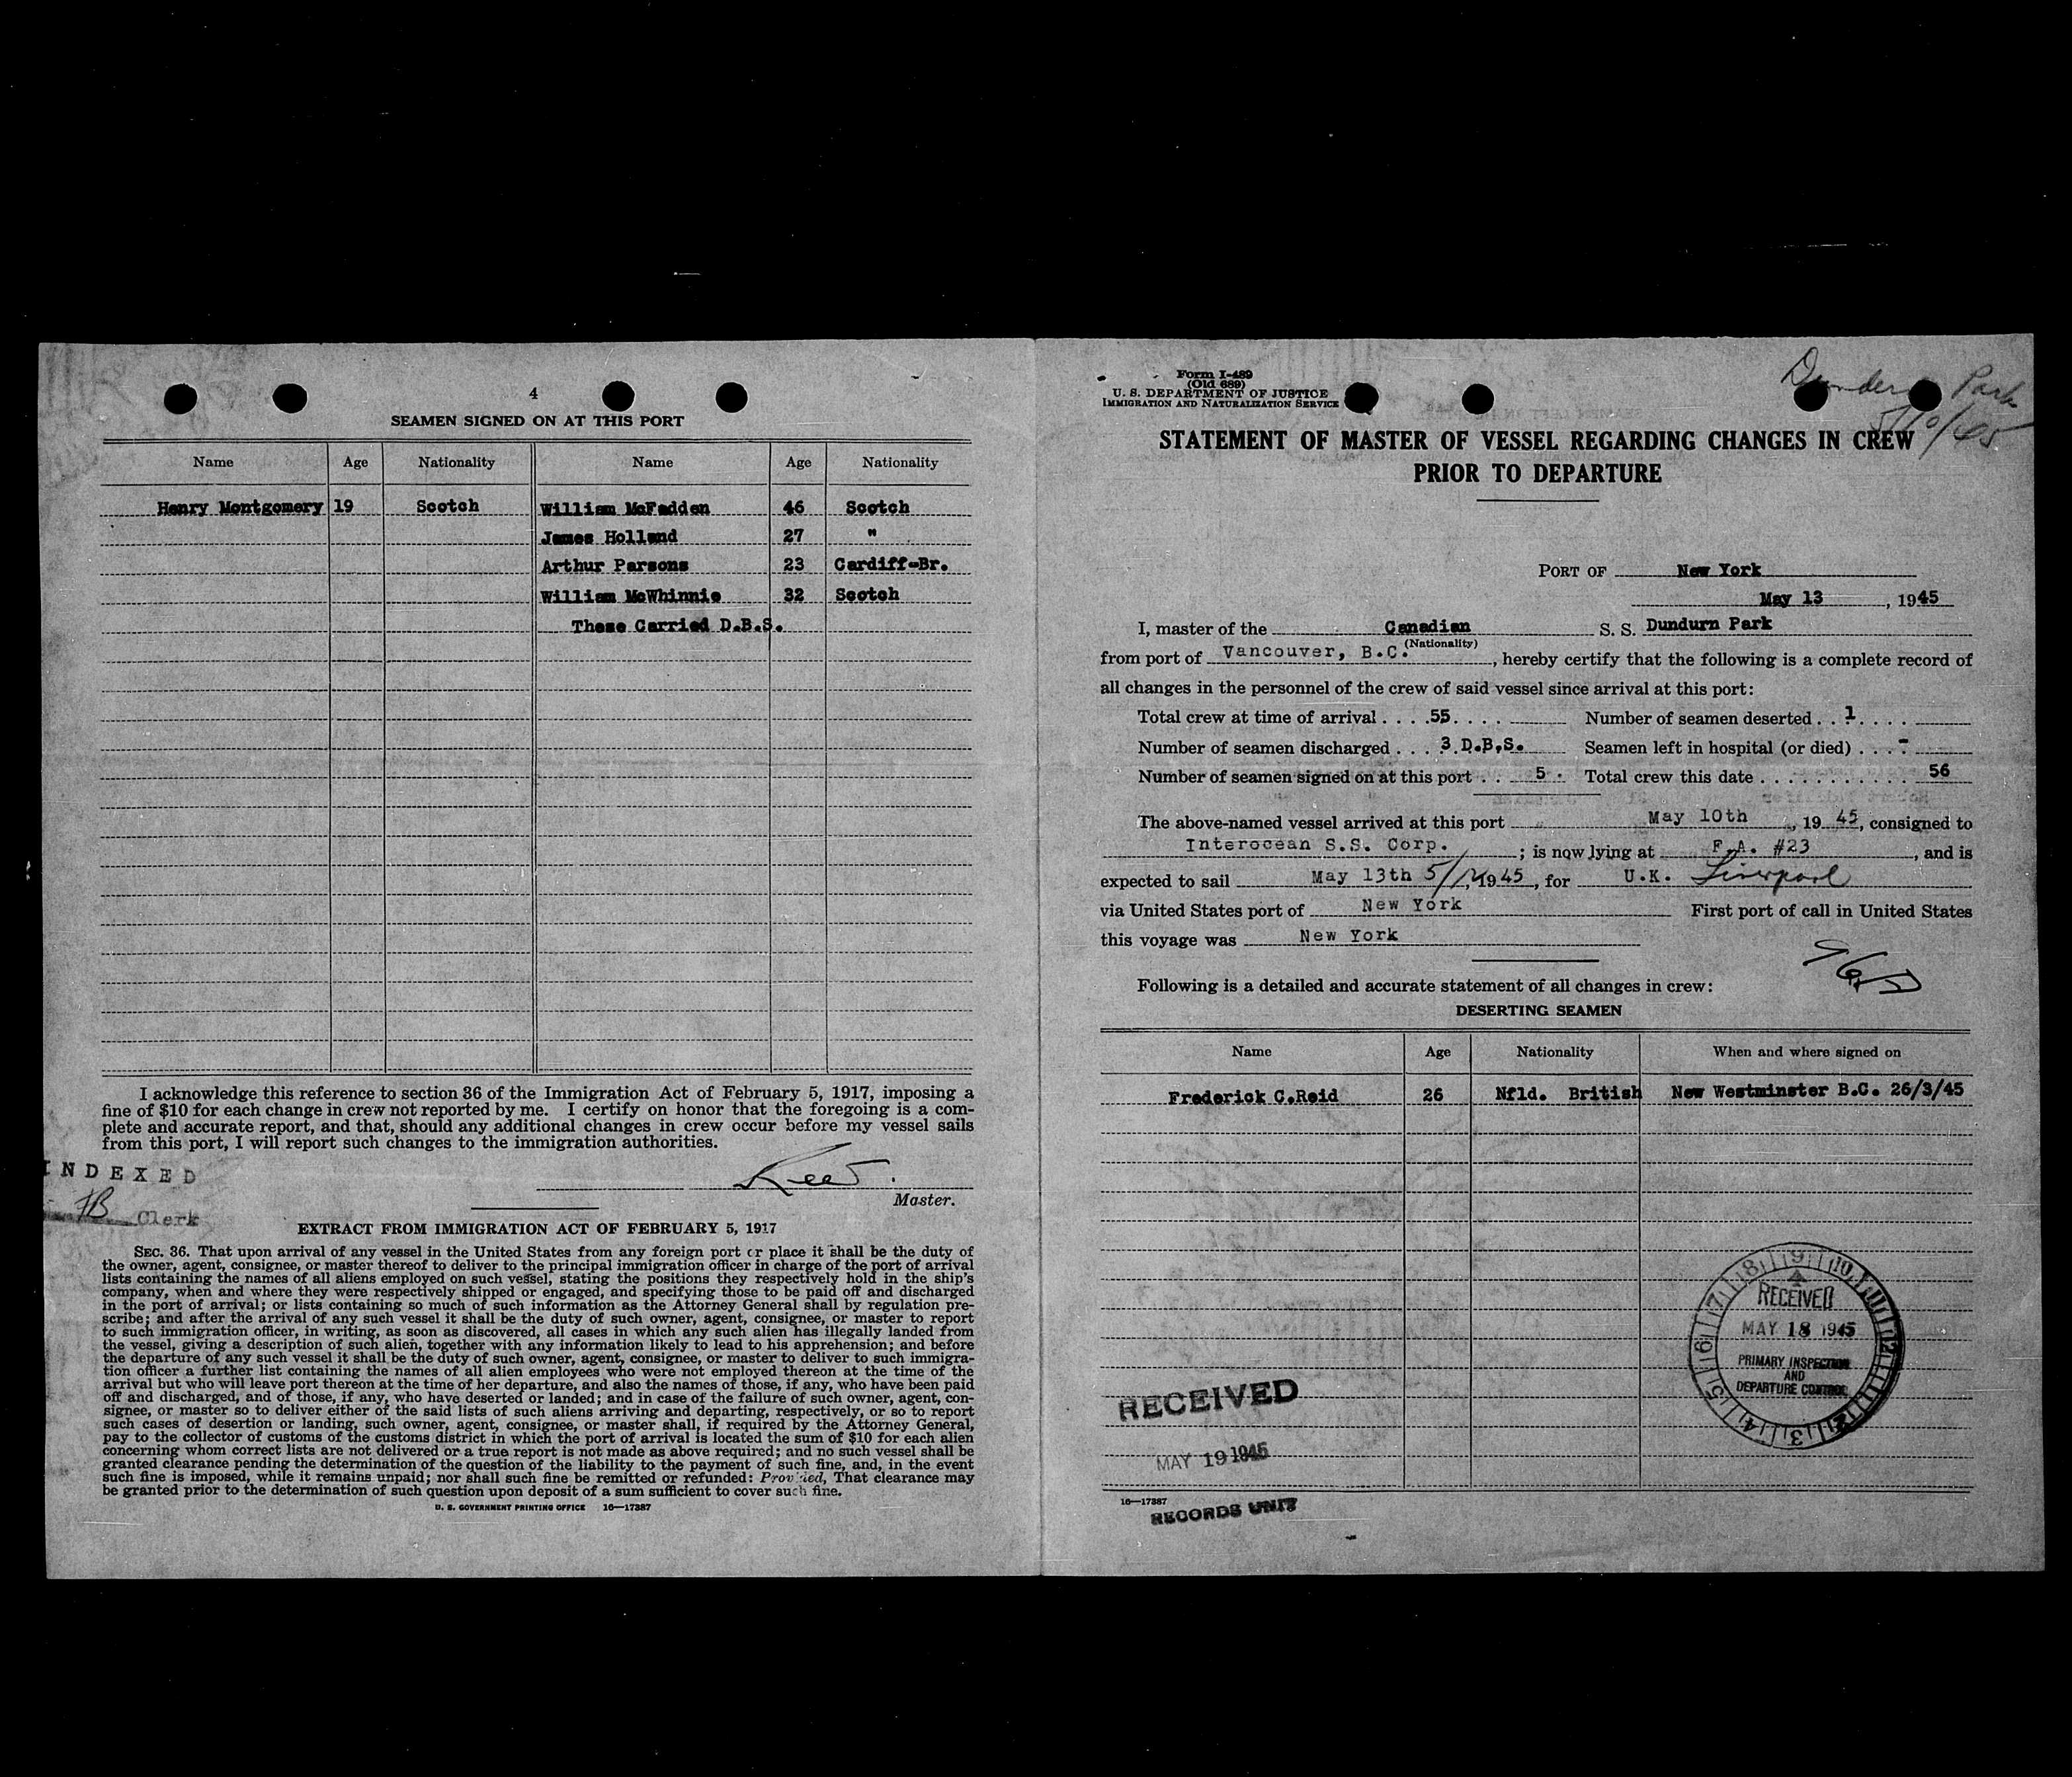 4
SEAMEN SIGNED ON AT THIS PORT
Name Age Nationality Name Age Nationality
Henry Montgomery 19 Scotch William McFadden 46 Scotch
James Holland 27 "
Arthur Parsons 23 Cardiff-Br.
William McWhinnie 32 Scotch
These Carried D.B.S.
I acknowledge this reference to section 36 of the Immigration Act of February 5, 1917, imposing a
fine of $10 for each change in crew not reported by me. I certify on honor that the foregoing is a com-
plete and accurate report, and that, should any additional changes in crew occur before my vessel sails
from this port, I will report such changes to the immigration authorities.
INDEXED
Clerk
Master.
EXTRACT FROM IMMIGRATION ACT OF FEBRUARY 5, 1917
SEC. 36. That upon arrival of any vessel in the United States from any foreign port or place it shall be the duty of
the owner, agent, consignee, or master thereof to deliver to the principal immigration officer in charge of the port of arrival
lists containing the names of all aliens employed on such vessel, stating the positions they respectively hold in the ship's
company, when and where they were respectively shipped or engaged, and specifying those to be paid off and discharged
in the port of arrival; or lists containing so much of such information as the Attorney General shall by regulation pre-
scribe; and after the arrival of any such vessel it shall be the duty of such owner, agent, consignee, or master to report
to such immigration officer, in writing, as soon as discovered, all cases in which any such alien has illegally landed from
the vessel, giving a description of such alien, together with any information likely to lead to his apprehension; and before
the departure of any such vessel it shall be the duty of such owner, agent, consignee, or master to deliver to such immigra-
tion officer a further list containing the names of all alien employees who were not employed thereon at the time of the
arrival but who will leave port thereon at the time of her departure, and also the names of those, if any, who have been paid
off and discharged, and of those, if any, who have deserted or landed; and in case of the failure of such owner, agent, con-
signee, or master so to deliver either of the said lists of such aliens arriving and departing, respectively, or so to report
such cases of desertion or landing, such owner, agent, consignee, or master shall, if required by the Attorney General,
pay to the collector of customs of the customs district in which the port of arrival is located the sum of $10 for each alien
concerning whom correct lists are not delivered or a true report is not made as above required; and no such vessel shall be
granted clearance pending the determination of the question of the liability to the payment of such fine, and, in the event
such fine is imposed, while it remains unpaid; nor shall such fine be remitted or refunded: Provided, That clearance may
be granted prior to the determination of such question upon deposit of a sum sufficient to cover such fine.
U. S. GOVERNMENT PRINTING OFFICE 16—17387
Form I-489
(Old 689)
U. S. DEPARTMENT OF JUSTICE
IMMIGRATION AND NATURALIZATION SERVICE
Dundurn Park
5/10/45
STATEMENT OF MASTER OF VESSEL REGARDING CHANGES IN CREW
PRIOR TO DEPARTURE
PORT OF New York
May 13, 1945
I, master of the Canadian S. S. Dundurn Park
(Nationality)
from port of Vancouver, B.C., hereby certify that the following is a complete record of
all changes in the personnel of the crew of said vessel since arrival at this port:
Total crew at time of arrival . . . . 55 . . . . Number of seamen deserted . . 1 . . . .
Number of seamen discharged . . . 3 D.B.S. Seamen left in hospital (or died) . . . -
Number of seamen signed on at this port . . 5 . Total crew this date . . . . . . . . . . . 56
The above-named vessel arrived at this port May 10th, 1945, consigned to
Interocean S.S. Corp. ; is now lying at F.A. #23, and is
expected to sail May 13th 1945, for U.K. Liverpool
via United States port of New York First port of call in United States
this voyage was New York
Following is a detailed and accurate statement of all changes in crew:
DESERTING SEAMEN
Name Age Nationality When and where signed on
Frederick C.Reid 26 Nfld. British New Westminster B.C. 26/3/45
RECEIVED
MAY 18 1945
PRIMARY INSPECTION
AND
DEPARTURE CONTROL
RECEIVED
MAY 19 1945
16—17387
RECORDS UNIT